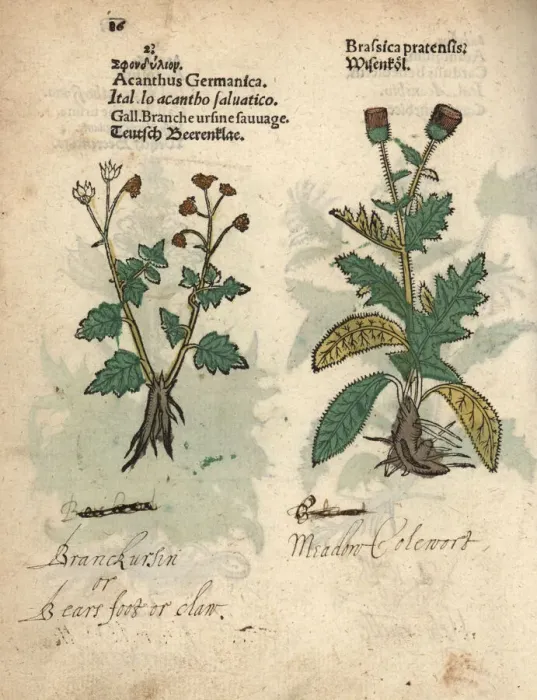 86
2?
Σφονδύλιον.
Acanthus Germanica.
Ital. lo acantho ſaluatico.
Gall. Branche urſine ſauuage.
Teutſch Beerenklae.
Braſsica pratensis?
Wiſenköl.
Branckurſin
or
Bears foot or claw.
Meadow Colewort.